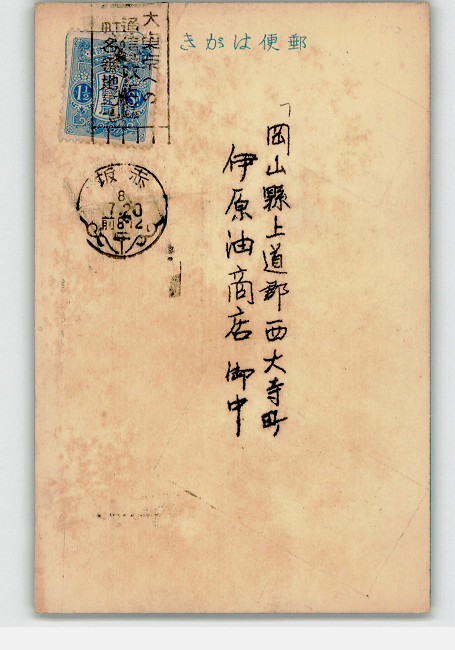 きがは便郵
大東京への
通信には
町名番地を
1½
赤坂
8
7.20
前8-12
岡山縣上道郡西大寺町
伊原油商店 御中